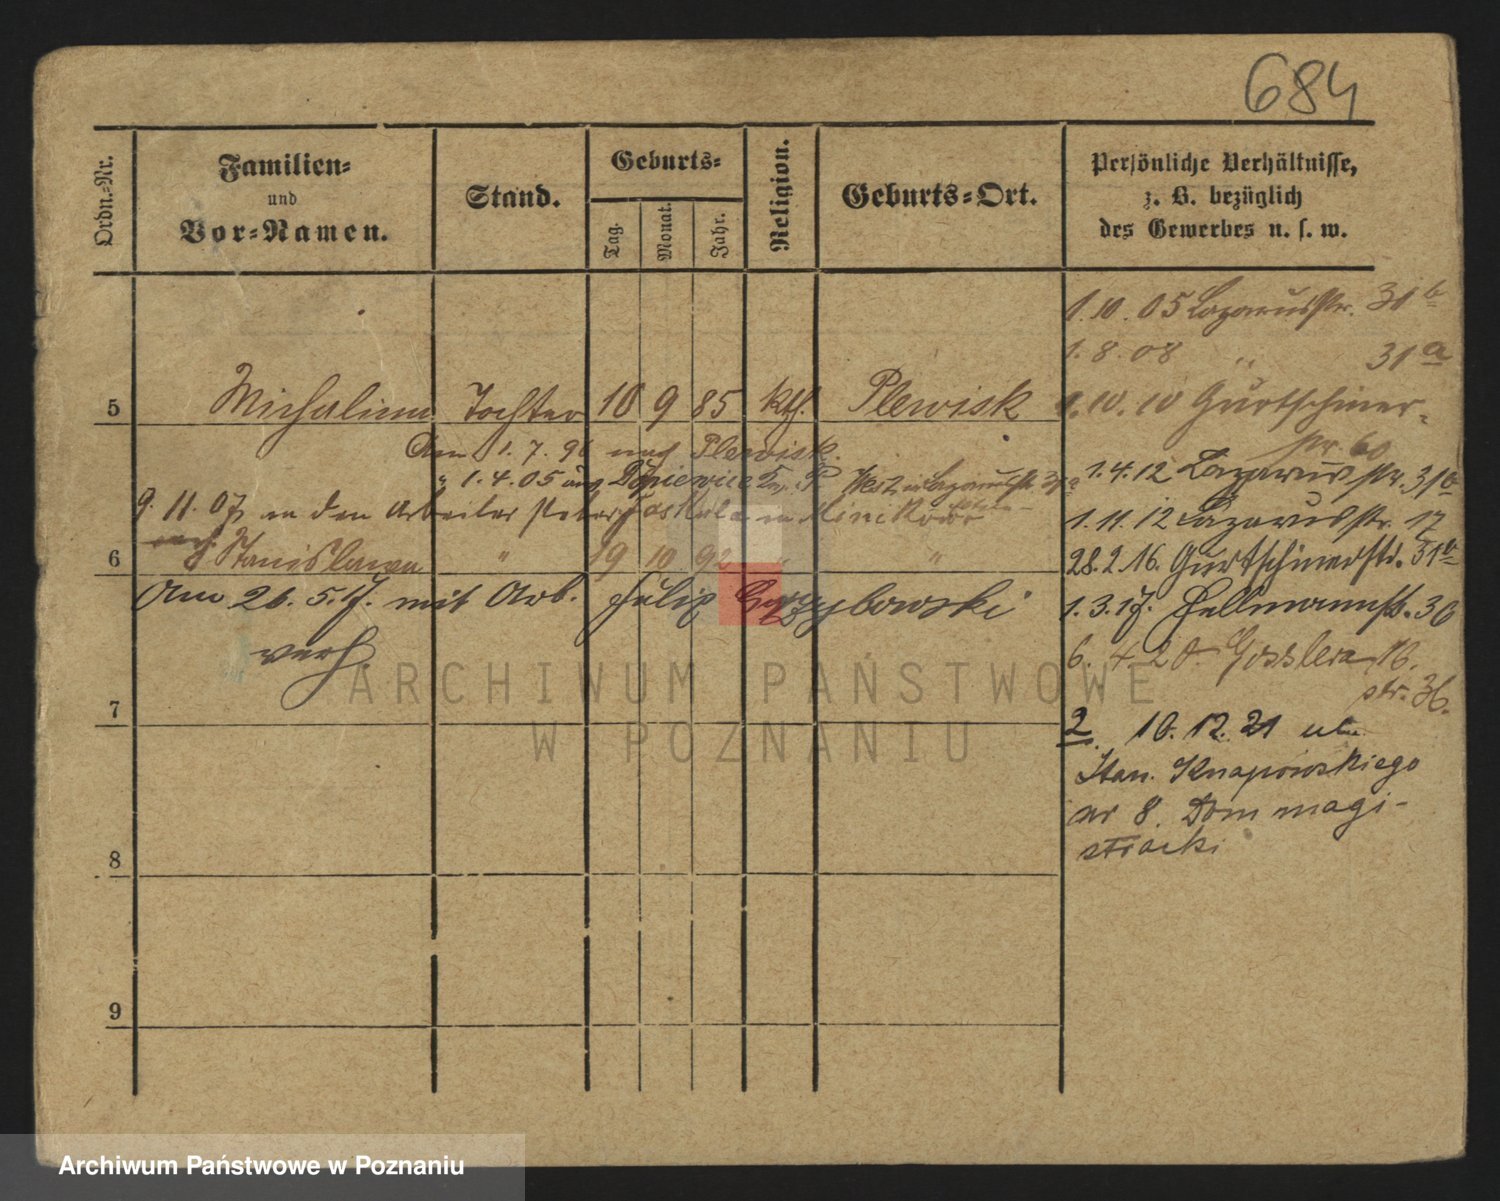 684
Ordn.-Nr.
Familien-
und
Vor-Namen.
Stand.
Geburts-
Tag.
Monat.
Jahr.
Religion.
Geburts-Ort.
Persönliche Verhältnisse,
z. B. bezüglich
des Gewerbes u. s. w.
1.10.05 Lazarusstr. 31b
1.8.08 " 31a
5 Michalina Tochter 10 9 85 kth. Plewisk
1.10.10 Gurtschiner-
str. 60
Am 1.7.96 nach Plewisk.
" 1.4.05 aus Dopiewice Lazarusstr.
1.4.12 Lazarusstr. 31b
9.11.07 an den Arbeiter Peter in Minikowo
1.11.12 Lazarusstr. 17
6 Stanislawa " 19 10 92 " "
28.2.16. Gurtschinerstr. 31a
Am 26.5.17. mit Arb. Felix Grzybowski
1.3.17. Hellmannstr. 30
verh.
6.4.20. Gosslera 16.
str. 36.
7
2. 10.12.21 ul.
Stan. Knapowskiego
nr 8. Dom magi-
stracki
8
9
ARCHIWUM PAŃSTWOWE
W POZNANIU
Archiwum Państwowe w Poznaniu